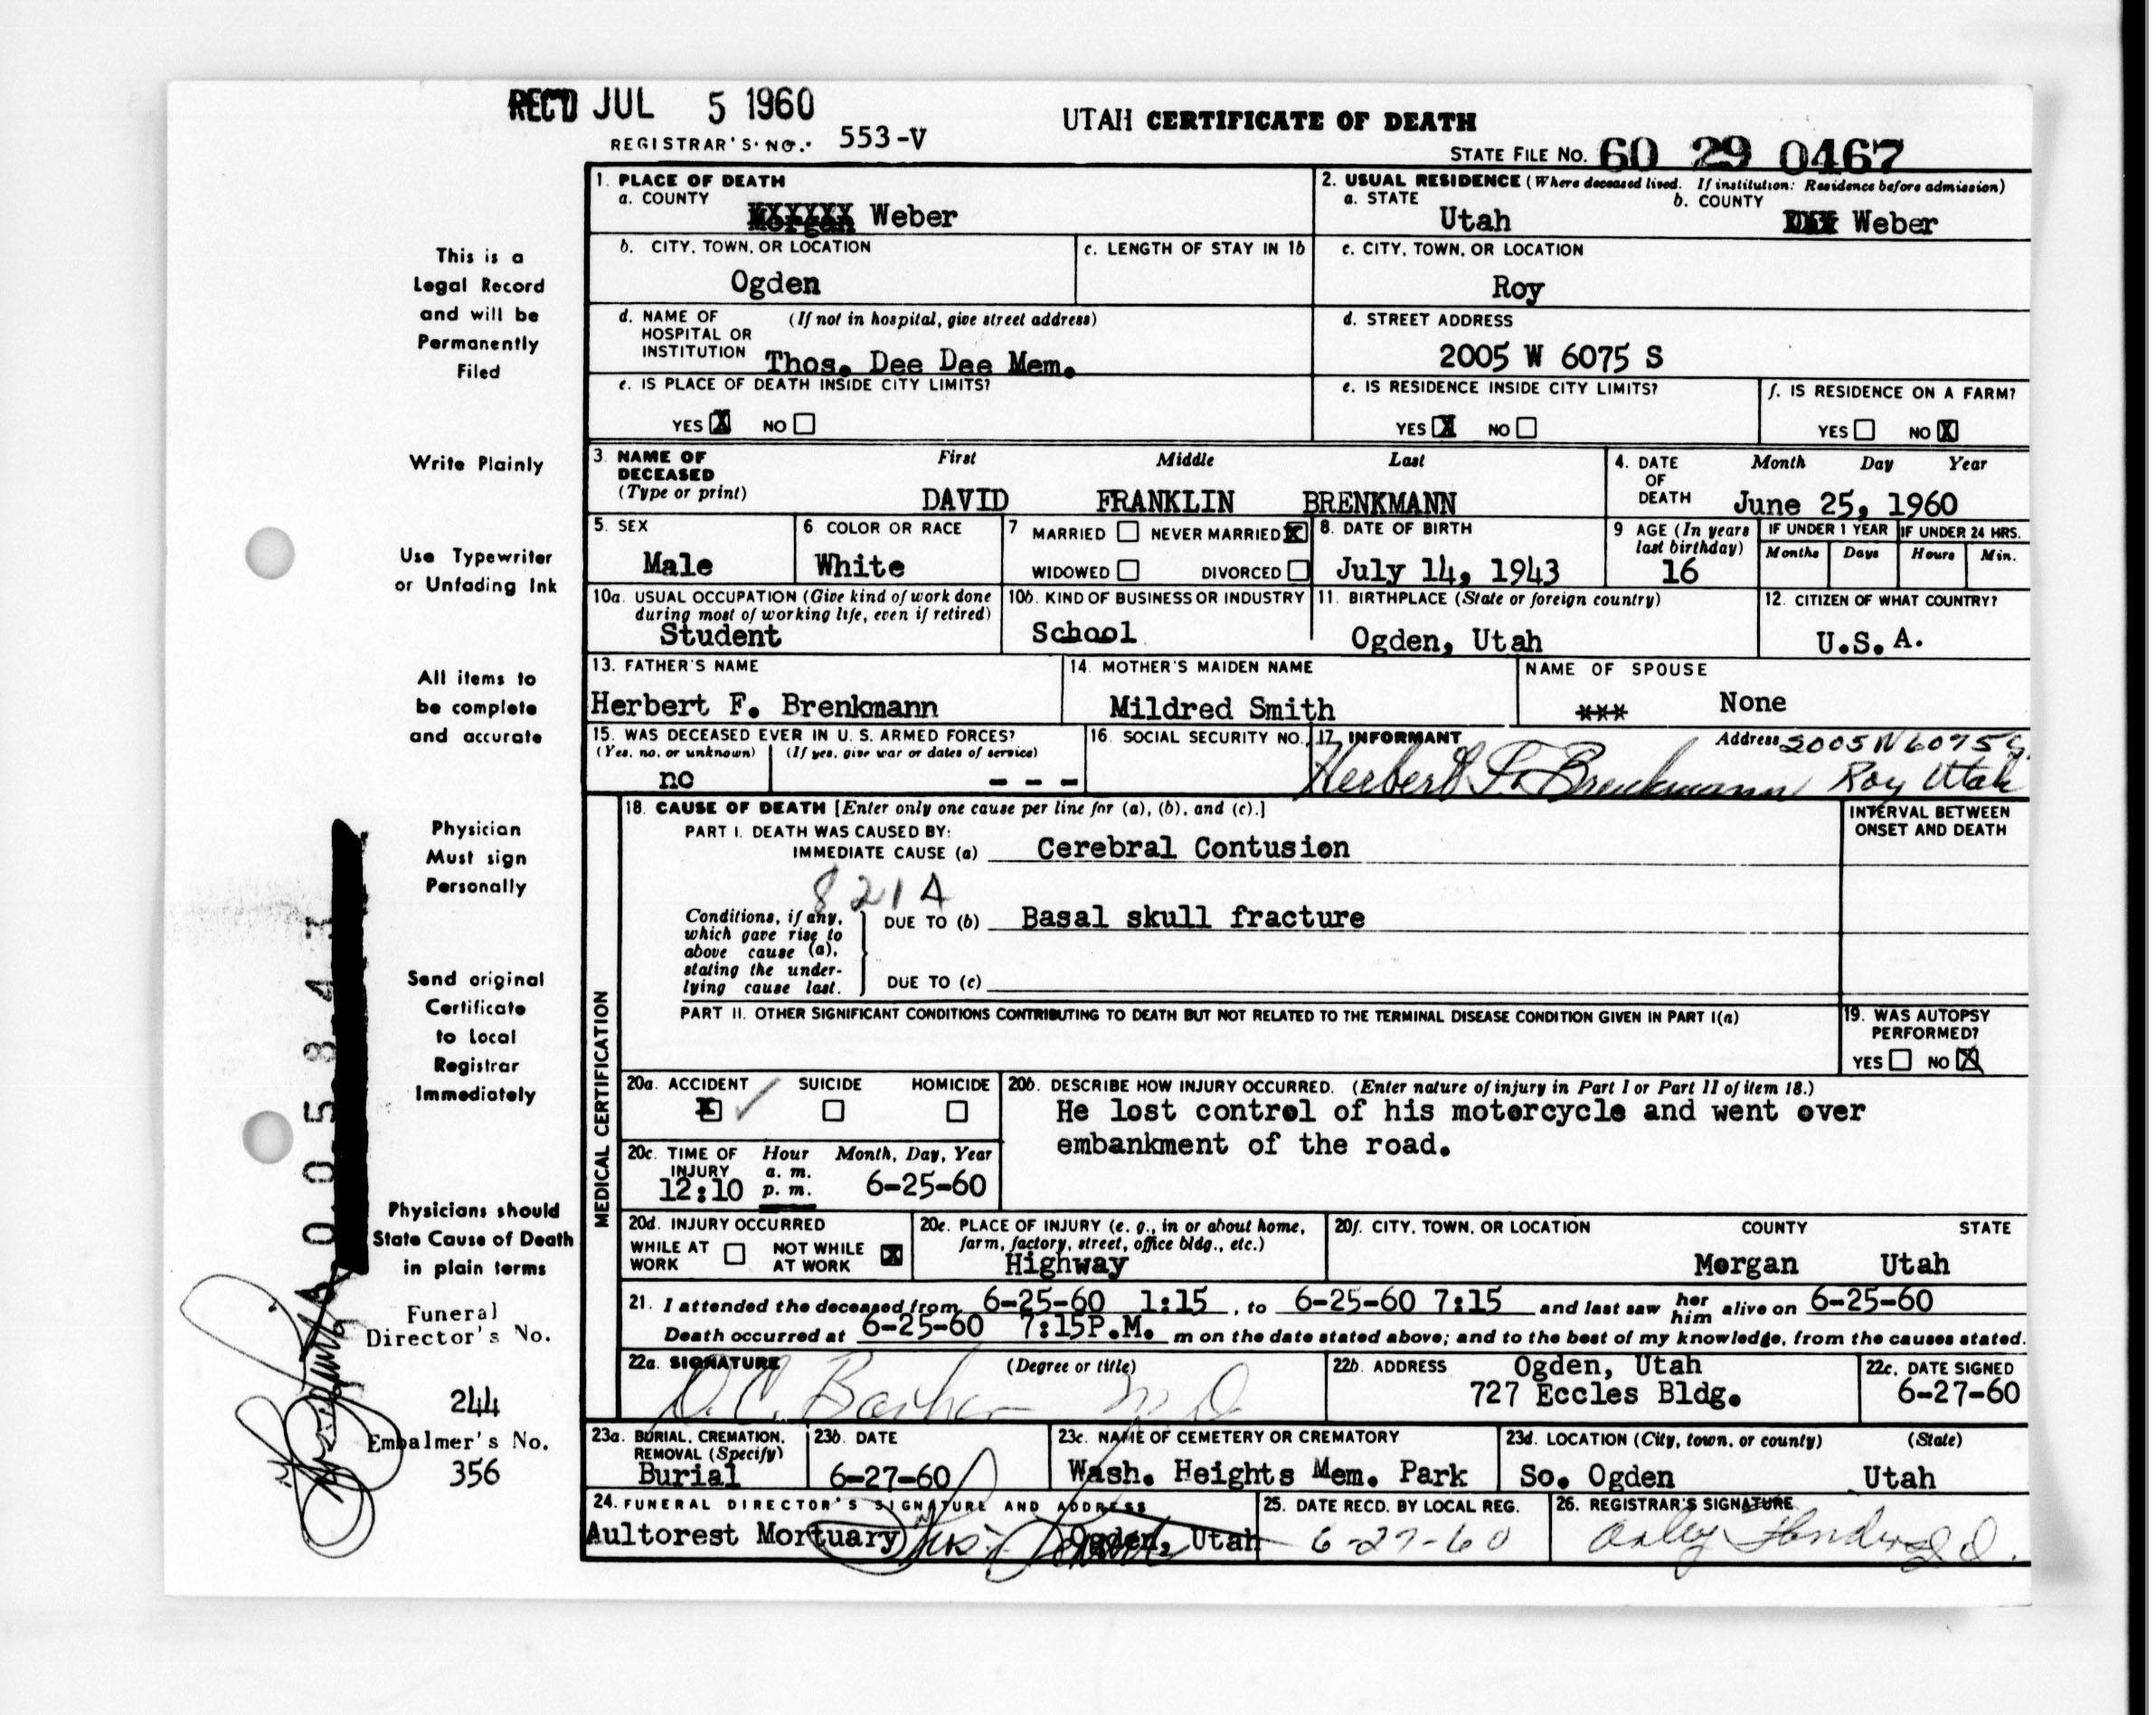 REC'D JUL 5 1960
REGISTRAR'S NO. 553-V
UTAH CERTIFICATE OF DEATH
STATE FILE NO. 60 29 0467
This is a
Legal Record
and will be
Permanently
Filed
Write Plainly
Use Typewriter
or Unfading Ink
All items to
be complete
and accurate
Physician
Must sign
Personally
Send original
Certificate
to Local
Registrar
Immediately
Physicians should
State Cause of Death
in plain terms
Funeral
Director's No.
244
Embalmer's No.
356
1. PLACE OF DEATH
a. COUNTY
Morgan Weber
2. USUAL RESIDENCE (Where deceased lived. If institution: Residence before admission)
a. STATE
Utah
b. COUNTY
Weber
b. CITY, TOWN, OR LOCATION
Ogden
c. LENGTH OF STAY IN 1b
c. CITY, TOWN, OR LOCATION
Roy
d. NAME OF (If not in hospital, give street address)
HOSPITAL OR
INSTITUTION Thos. Dee Dee Mem.
d. STREET ADDRESS
2005 W 6075 S
e. IS PLACE OF DEATH INSIDE CITY LIMITS?
YES X NO
e. IS RESIDENCE INSIDE CITY LIMITS?
YES X NO
f. IS RESIDENCE ON A FARM?
YES NO X
3. NAME OF
DECEASED
(Type or print)
First Middle Last
DAVID FRANKLIN BRENKMANN
4. DATE
OF
DEATH
Month Day Year
June 25, 1960
5. SEX
Male
6. COLOR OR RACE
White
7 MARRIED NEVER MARRIED X
WIDOWED DIVORCED
8. DATE OF BIRTH
July 14, 1943
9 AGE (In years
last birthday)
16
IF UNDER 1 YEAR
Months Days
IF UNDER 24 HRS.
Hours Min.
10a. USUAL OCCUPATION (Give kind of work done
during most of working life, even if retired)
Student
10b. KIND OF BUSINESS OR INDUSTRY
School
11. BIRTHPLACE (State or foreign country)
Ogden, Utah
12. CITIZEN OF WHAT COUNTRY?
U.S.A.
13. FATHER'S NAME
Herbert F. Brenkmann
14. MOTHER'S MAIDEN NAME
Mildred Smith
NAME OF SPOUSE
*** None
15. WAS DECEASED EVER IN U. S. ARMED FORCES?
(Yes, no, or unknown) (If yes, give war or dates of service)
no - - -
16. SOCIAL SECURITY NO.
17. INFORMANT Address 2005 W 6075 S.
Herbert F. Brenkmann Roy Utah
MEDICAL CERTIFICATION
18. CAUSE OF DEATH [Enter only one cause per line for (a), (b), and (c).]
PART I. DEATH WAS CAUSED BY:
IMMEDIATE CAUSE (a) Cerebral Contusion
821A
Conditions, if any,
which gave rise to
above cause (a),
stating the under-
lying cause last.
DUE TO (b) Basal skull fracture
DUE TO (c)
INTERVAL BETWEEN
ONSET AND DEATH
PART II. OTHER SIGNIFICANT CONDITIONS CONTRIBUTING TO DEATH BUT NOT RELATED TO THE TERMINAL DISEASE CONDITION GIVEN IN PART I(a)
19. WAS AUTOPSY
PERFORMED?
YES NO X
20a. ACCIDENT SUICIDE HOMICIDE
X
20b. DESCRIBE HOW INJURY OCCURRED. (Enter nature of injury in Part I or Part II of item 18.)
He lost control of his motorcycle and went over
embankment of the road.
20c. TIME OF Hour Month, Day, Year
INJURY a. m.
12:10 p. m. 6-25-60
20d. INJURY OCCURRED
WHILE AT NOT WHILE X
WORK AT WORK
20e. PLACE OF INJURY (e. g., in or about home,
farm, factory, street, office bldg., etc.)
Highway
20f. CITY, TOWN, OR LOCATION COUNTY STATE
Morgan Utah
21. I attended the deceased from 6-25-60 1:15 , to 6-25-60 7:15 and last saw her him alive on 6-25-60
Death occurred at 6-25-60 7:15P.M. m on the date stated above; and to the best of my knowledge, from the causes stated.
22a. SIGNATURE (Degree or title)
D.C. M D
22b. ADDRESS Ogden, Utah
727 Eccles Bldg.
22c. DATE SIGNED
6-27-60
23a. BURIAL, CREMATION,
REMOVAL (Specify)
Burial
23b. DATE
6-27-60
23c. NAME OF CEMETERY OR CREMATORY
Wash. Heights Mem. Park
23d. LOCATION (City, town, or county) (State)
So. Ogden Utah
24. FUNERAL DIRECTOR'S SIGNATURE AND ADDRESS
Aultorest Mortuary Ogden, Utah
25. DATE RECD. BY LOCAL REG.
6-27-60
26. REGISTRAR'S SIGNATURE